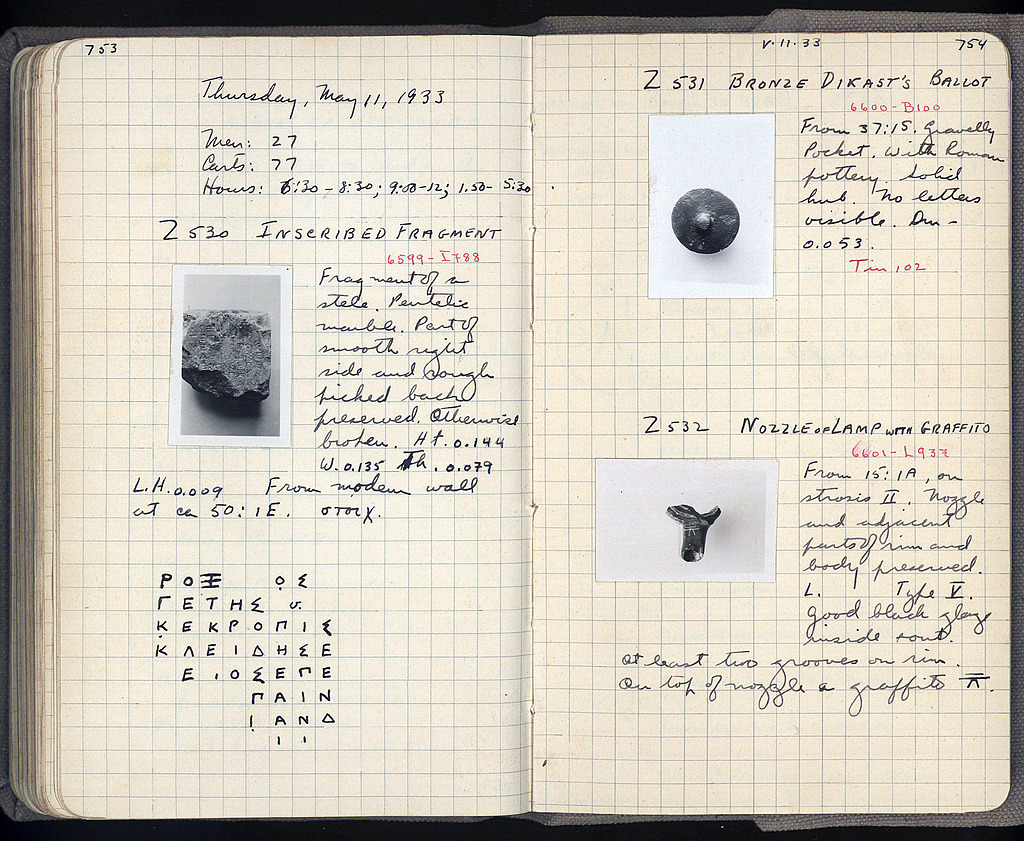 753
Thursday, May 11, 1933
Men: 27
Carts: 77
Hours: 6:30 - 8:30; 9:00-12; 1.50- 5:30
Z 530 INSCRIBED FRAGMENT
6599-I788
Fragment of a
stele. Pentelic
marble. Part of
smooth right
side and rough
picked back
preserved. Otherwise
broken. Ht. 0.144
W. 0.135 Th. 0.079
L.H. 0.009 From modern wall
at ca 50: 1E. στοιχ.
ΡΟΞ ΟΣ
ΓΕΤΗΣ
ΚΕΚΡΟΠΙΣ
ΚΛΕΙΔΗΣΕ
ΕΙΟΣΕΠΕ
ΓΑΙΝ
ΙΑΝΔ
Ι Ι
V.11.33 754
Z 531 BRONZE DIKAST'S BALLOT
6600-B100
From 37:15. Gravelly
Pocket. With Roman
pottery. Solid
hub. No letters
visible. Dm -
0.053.
Tin 102
Z 532 NOZZLE OF LAMP WITH GRAFFITO
6601-L937
From 15: 1A, on
strosis II. Nozzle
and adjacent
parts of rim and
body preserved.
L. Type V.
Good black glaze
inside + out.
At least two grooves on rim.
On top of nozzle a graffito